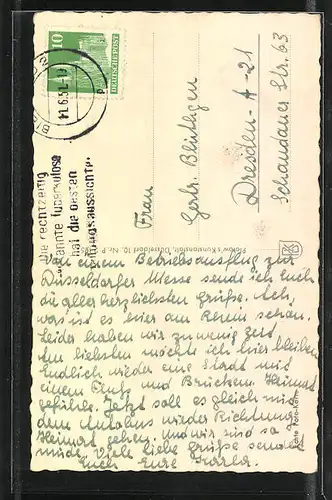 10
DEUTSCHE POST
11.6.51.
Die rechtzeitig
erkannte Tuberkulose
hat die besten
Heilungsaussichten
Frau
Gertr. Benthgen
Dresden-A-21
Schandauer Str. 63
Kunstanstalt, Düsseldorf 10, Nr. P.
Echte Foto-
Von einem Betriebsausflug zur
Düsseldorfer Messe sende ich Euch
die allerherzlichsten Grüße. Ach,
was ist es hier am Rhein schön.
Leider haben wir zu wenig Zeit.
Am liebsten möchte ich hier bleiben.
Endlich wieder eine Stadt mit
einem Fluß und Brücken. Heimat
gefühle. Jetzt soll es gleich mit
dem Autobus wieder Richtung
Heimat gehen. Und wir sind so
müde. Viele liebe Grüße sendet
Euch Eure